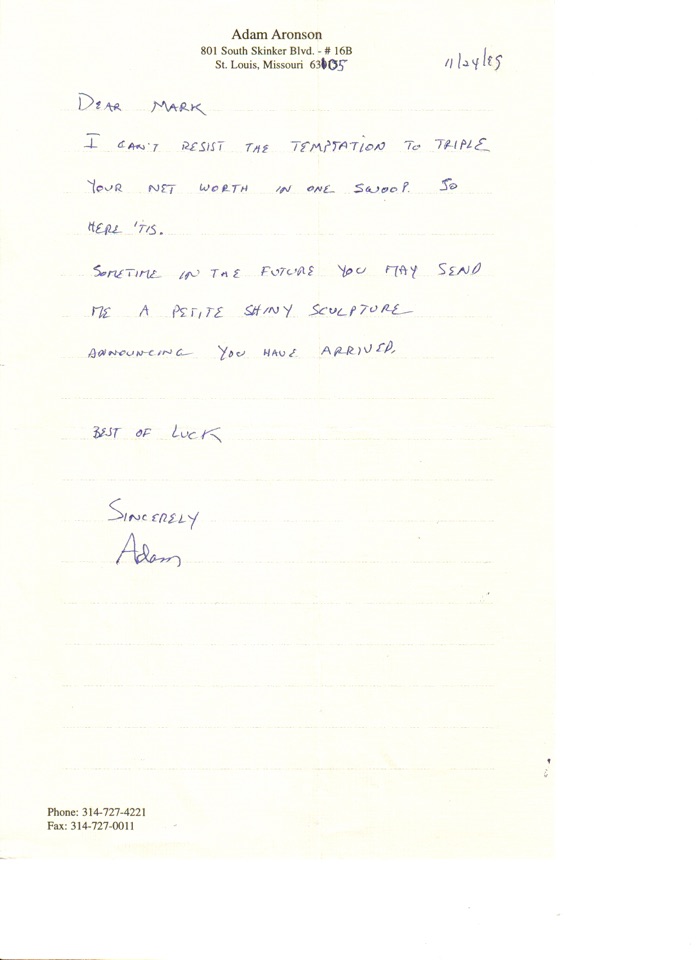 Adam Aronson
801 South Skinker Blvd. - # 16B
St. Louis, Missouri 63105
11/24/89
DEAR MARK
I CAN'T RESIST THE TEMPTATION TO TRIPLE
YOUR NET WORTH IN ONE SWOOP. SO
HERE 'TIS.
SOMETIME IN THE FUTURE YOU MAY SEND
ME A PETITE SHINY SCULPTURE
ANNOUNCING YOU HAVE ARRIVED.
BEST OF LUCK
SINCERELY
Adam
Phone: 314-727-4221
Fax: 314-727-0011